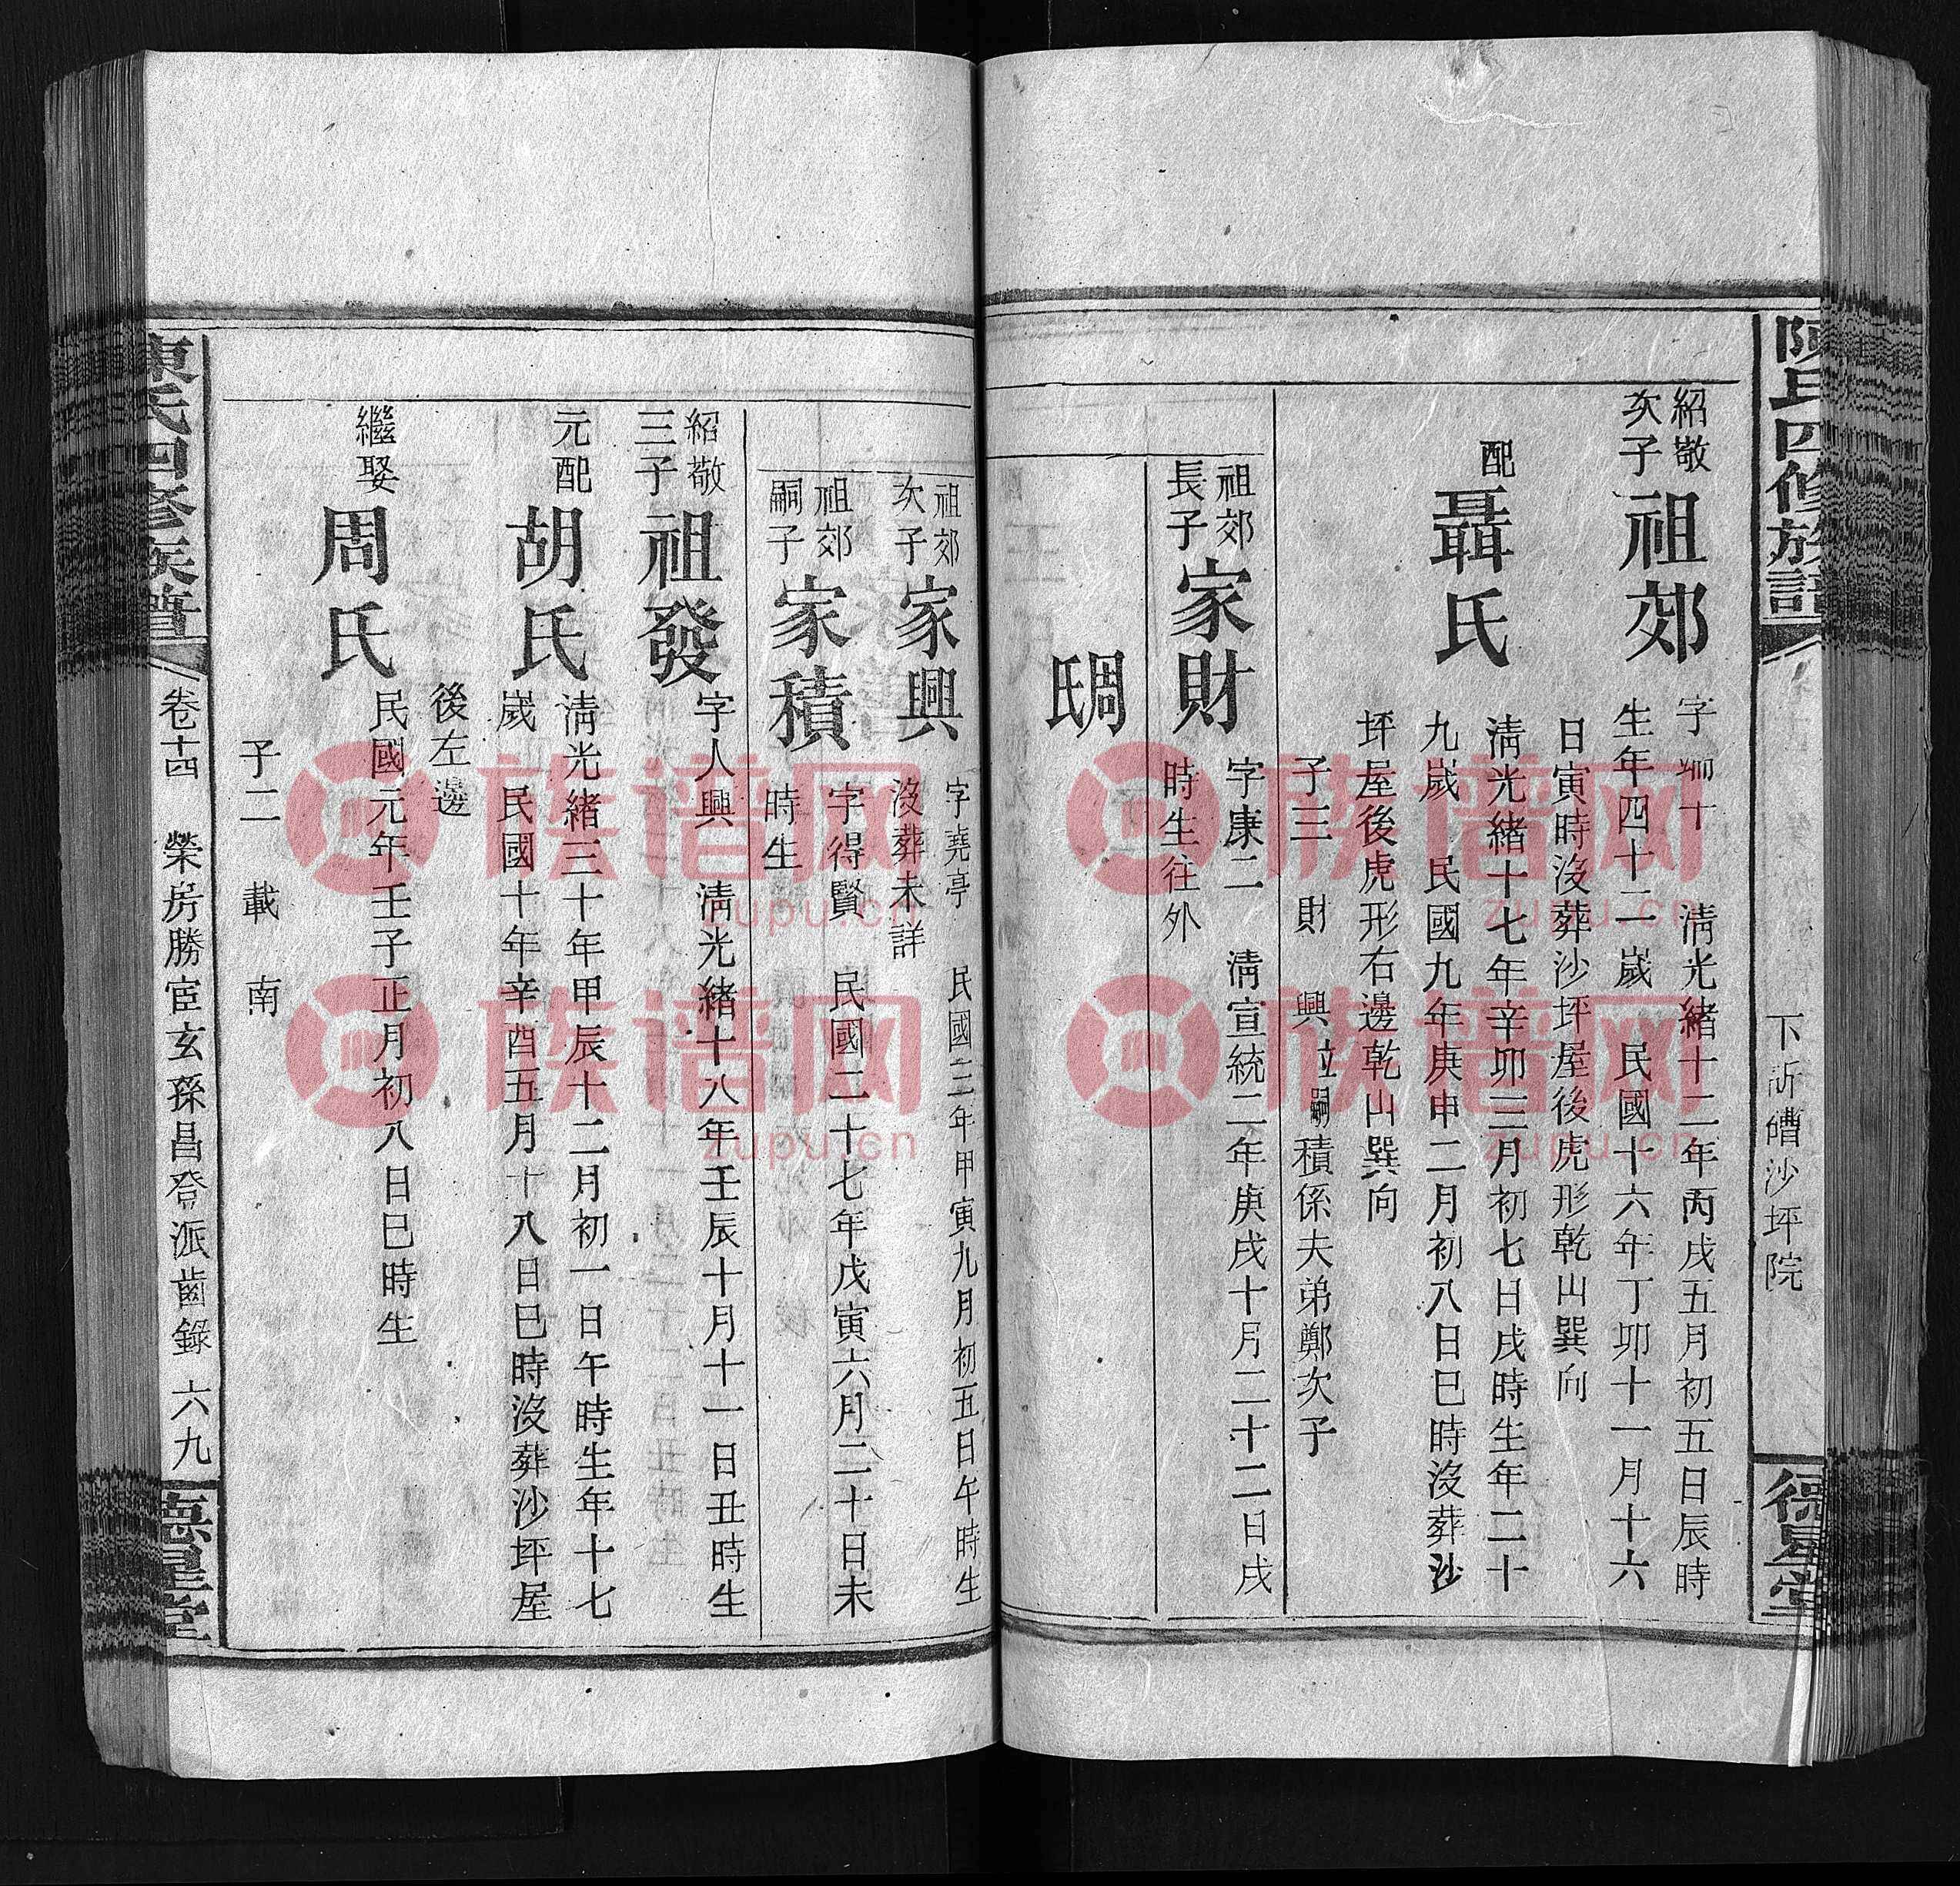 陳氏四修族譜
下訢皭沙坪院
德星堂
紹敬
次子
祖郊
字 十 清光緒十二年丙戌五月初五日辰時
生年四十二歲 民國十六年丁卯十一月十六
日寅時沒葬沙坪屋後虎形乾山巽向
配
聶氏
清光緒十七年辛卯三月初七日戌時生年二十
九歲 民國九年庚申二月初八日巳時沒葬沙
坪屋後虎形右邊乾山巽向
子三 財 興 立嗣積係夫弟鄭次子
祖郊
長子
家財
字康二 清宣統二年庚戌十月二十二日戌
時生往外
周氏
祖郊
次子
家興
字堯亭 民國三年甲寅九月初五日午時生
沒葬未詳
祖郊
嗣子
家積
字得賢 民國二十七年戊寅六月二十日未
時生
紹敬
三子
祖發
字人興 清光緒十八年壬辰十月十一日丑時生
元配
胡氏
清光緒三十年甲辰十二月初一日午時生年十七
歲 民國十年辛酉五月十八日巳時沒葬沙坪屋
後左邊
繼娶
周氏
民國元年壬子正月初八日巳時生
子二 載 南
陳氏四修族譜
卷十四 榮房勝宦玄孫昌登派齒錄 六九
德星堂
族谱网
zupu.cn
族谱网
zupu.cn
族谱网
zupu.cn
族谱网
zupu.cn